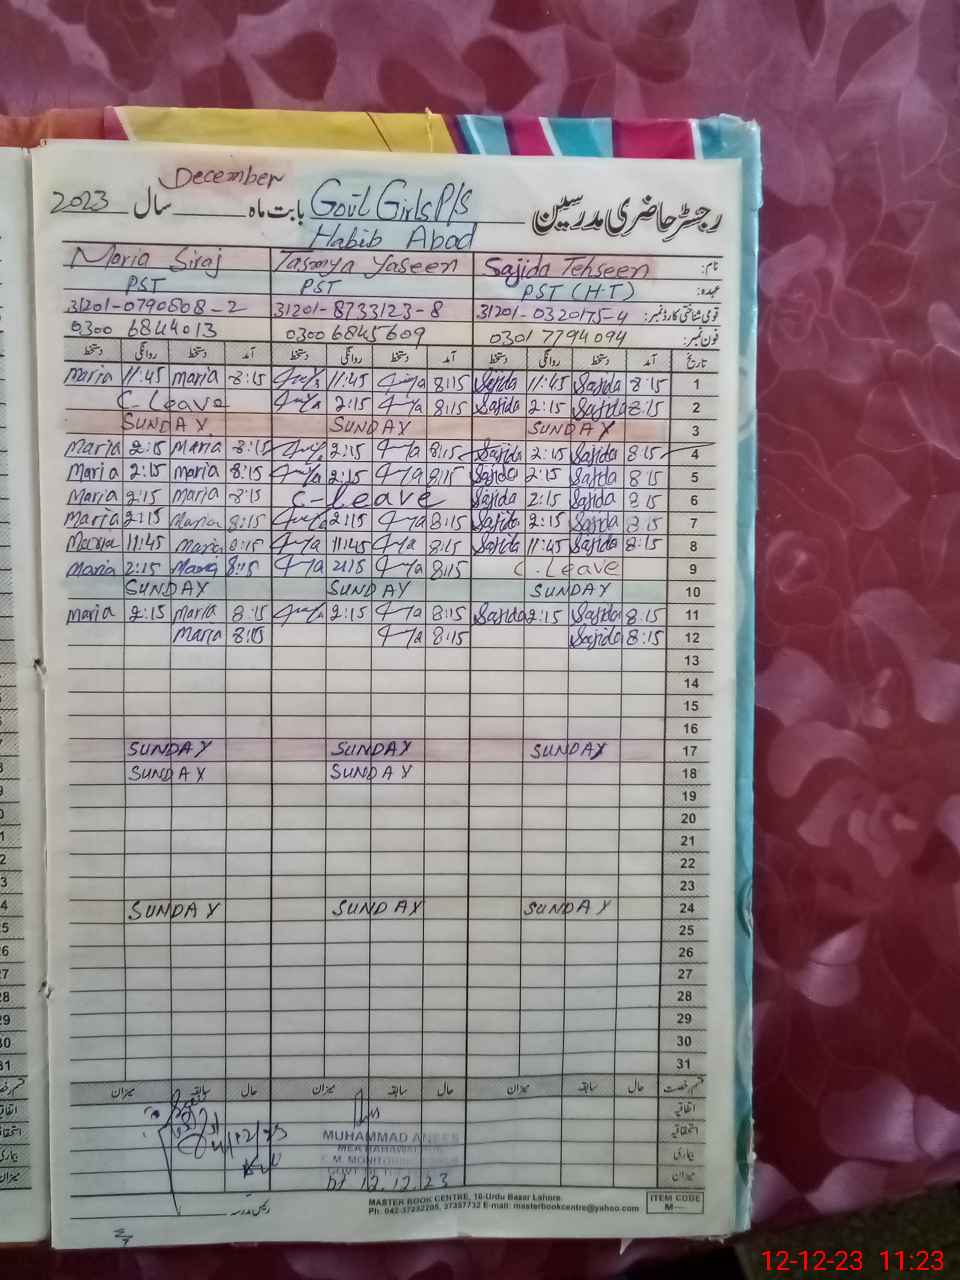 رجسٹر حاضری مدرسین Govt Girls P/S بابت ماہ December سال 2023
Habib Abad
نام: Sajida Tehseen Tasmya Yaseen Maria Siraj
عہدہ: PST (H.T) PST PST
قومی شناختی کارڈ نمبر: 31201-0320175-4 31201-8733123-8 31201-0790808-2
فون نمبر: 0301 7794094 0300 6845609 0300 6844013
تاریخ آمد دستخط روانگی دستخط آمد دستخط روانگی دستخط آمد دستخط روانگی دستخط
1 8:15 Sajida 11:45 Sajida 8:15 11:45 8:15 maria 11:45 maria
2 8:15 Sajida 2:15 Sajida 8:15 2:15 C-Leave
3 SUNDAY SUNDAY SUNDAY
4 8:15 Sajida 2:15 Sajida 8:15 2:15 8:15 Maria 2:15 Maria
5 8:15 Sajida 2:15 Sajida 8:15 2:15 8:15 maria 2:15 Maria
6 8:15 Sajida 2:15 Sajida C-Leave 8:15 Maria 2:15 Maria
7 8:15 Sajida 2:15 Sajida 8:15 2:15 8:15 Maria 2:15 Maria
8 8:15 Sajida 11:45 Sajida 8:15 11:45 8:15 Maria 11:45 Maria
9 C.Leave 8:15 2:15 8:15 Maria 2:15 Maria
10 SUNDAY SUNDAY SUNDAY
11 8:15 Sajida 2:15 Sajida 8:15 2:15 8:15 Maria 2:15 Maria
12 8:15 Sajida 8:15 8:15 Maria
13
14
15
16
17 SUNDAY SUNDAY SUNDAY
18 SUNDAY SUNDAY
19
20
21
22
23
24 SUNDAY SUNDAY SUNDAY
25
26
27
28
29
30
31
قسم رخصت حال سابقہ میزان حال سابقہ میزان حال سابقہ میزان
اتفاقیہ
استحقاقیہ
بیماری
میزان
MUHAMMAD ANEES
12.12.23
رئیس مدرسہ
MASTER BOOK CENTRE, 18-Urdu Bazar Lahore.
Ph: 042-37232705, 37357732 E-mail: masterbookcentre@yahoo.com
ITEM CODE
M—
12-12-23 11:23